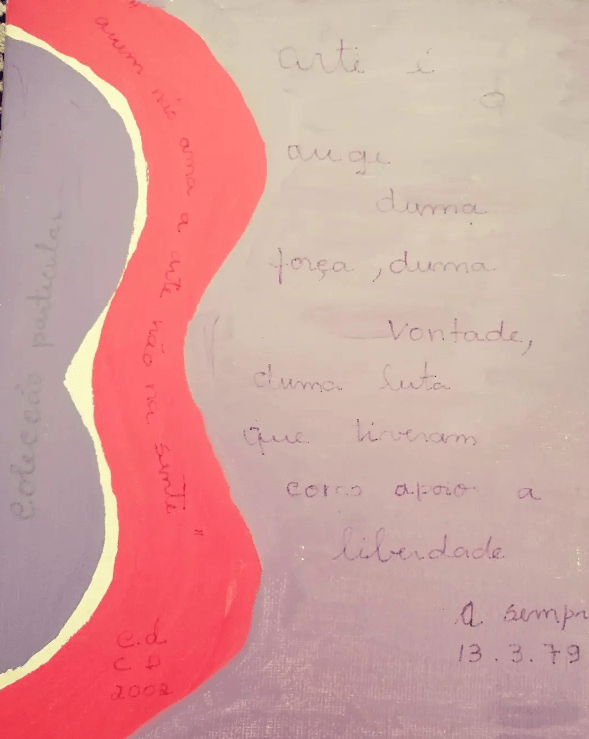 Colecção particular
"quem não ama a arte não na sente"
arte é
o
auge
duma
força, duma
vontade,
duma luta
que tiveram
como apoio a
liberdade
a sempr
13.3.79
2002